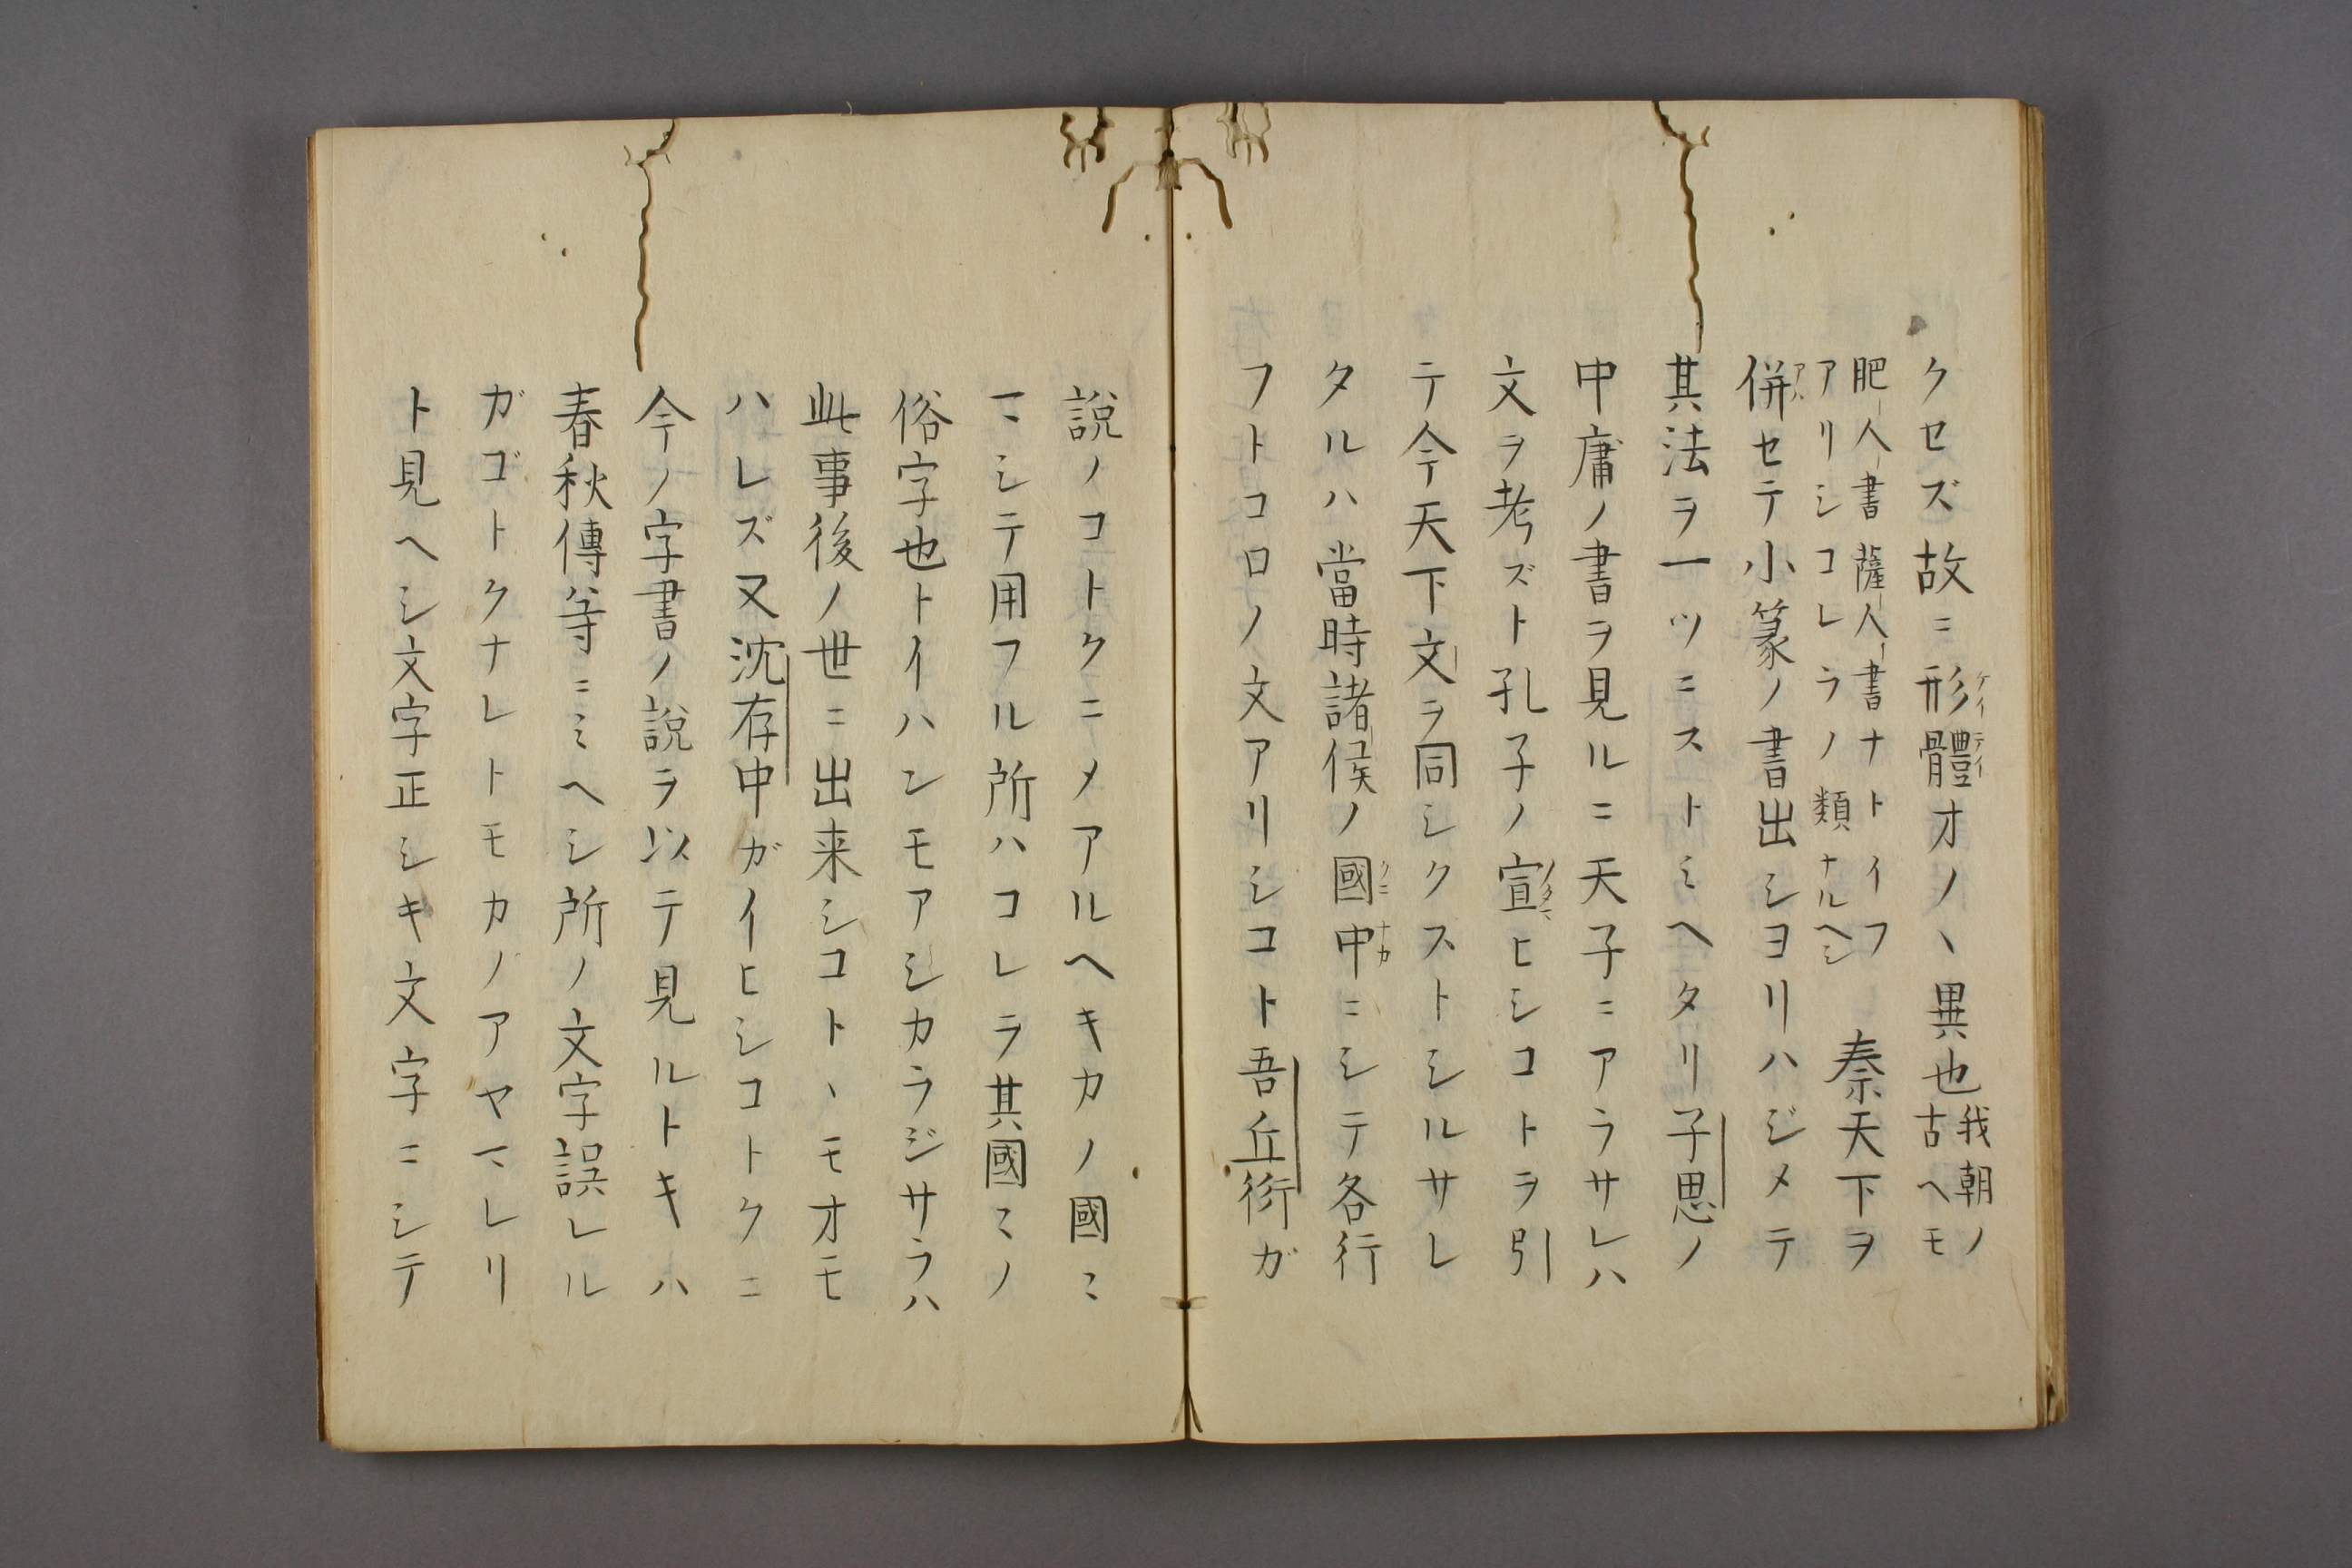 クセズ故ニ形體オノヽ異也我朝ノ
古ヘモ
肥人書薩人書ナトイフ
アリシコレラノ類ナルヘシ
秦天下ヲ
併セテ小篆ノ書出シヨリハジメテ
其法ヲ一ツニストミヘタリ子思ノ
中庸ノ書ヲ見ルニ天子ニアラサレハ
文ヲ考ズト孔子ノ宣ヒシコトヲ引
テ今天下文ヲ同シクストシルサレ
タルハ當時諸侯ノ國中ニシテ各行
フトコロノ文アリシコト吾丘衍ガ
說ノコトクニメアルヘキカノ國〻
ニシテ用フル所ハコレラ其國〻ノ
俗字也トイハンモアシカラジサラハ
此事後ノ世ニ出来シコトヽモオモ
ハレズ又沈存中ガイヒシコトクニ
今ノ字書ノ說ヲ以テ見ルトキハ
春秋傳等ニミヘシ所ノ文字誤レル
ガゴトクナレトモカノアヤマレリ
ト見ヘシ文字正シキ文字ニシテ